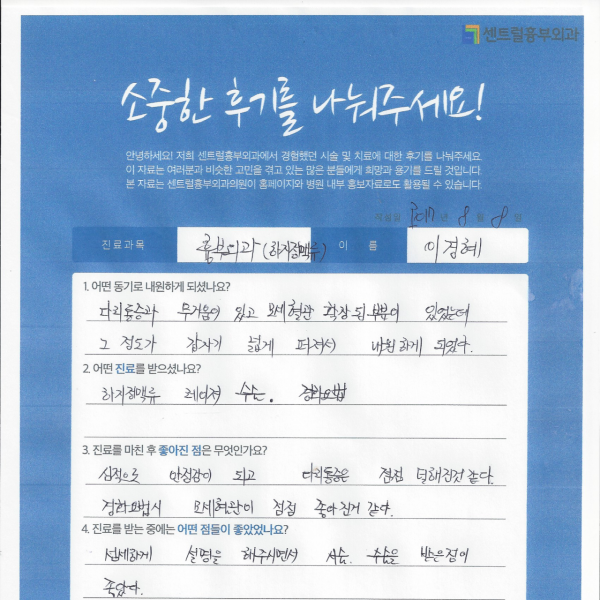 센트럴흉부외과
소중한 후기를 나눠주세요!
안녕하세요! 저희 센트럴흉부외과에서 경험했던 시술 및 치료에 대한 후기를 나눠주세요
이 자료는 여러분과 비슷한 고민을 겪고 있는 많은 분들에게 희망과 용기를 드릴 것입니다.
본 자료는 센트럴흉부외과의원이 홈페이지와 병원 내부 홍보자료로도 활용될 수 있습니다
작성일 2017 년 8 월 8 일
진료과목 흉부외과 (하지정맥류) 이 름 이경혜
1. 어떤 동기로 내원하게 되셨나요?
다리통증과 무거움이 있고 모세혈관 확장 된 부분이 있었는데
그 정도가 갑자기 넓게 퍼져서 내원하게 되었다.
2. 어떤 진료를 받으셨나요?
하지정맥류 레이져 수술. 경화요법
3. 진료를 마친 후 좋아진 점은 무엇인가요?
심적으로 안정감이 되고 다리통증은 점점 덜해진것 같다.
경화요법시 모세혈관이 점점 좋아진거 같다.
4. 진료를 받는 중에는 어떤 점들이 좋았었나요?
섬세하게 설명을 해주시면서 시술. 수술을 받은점이
좋았다.